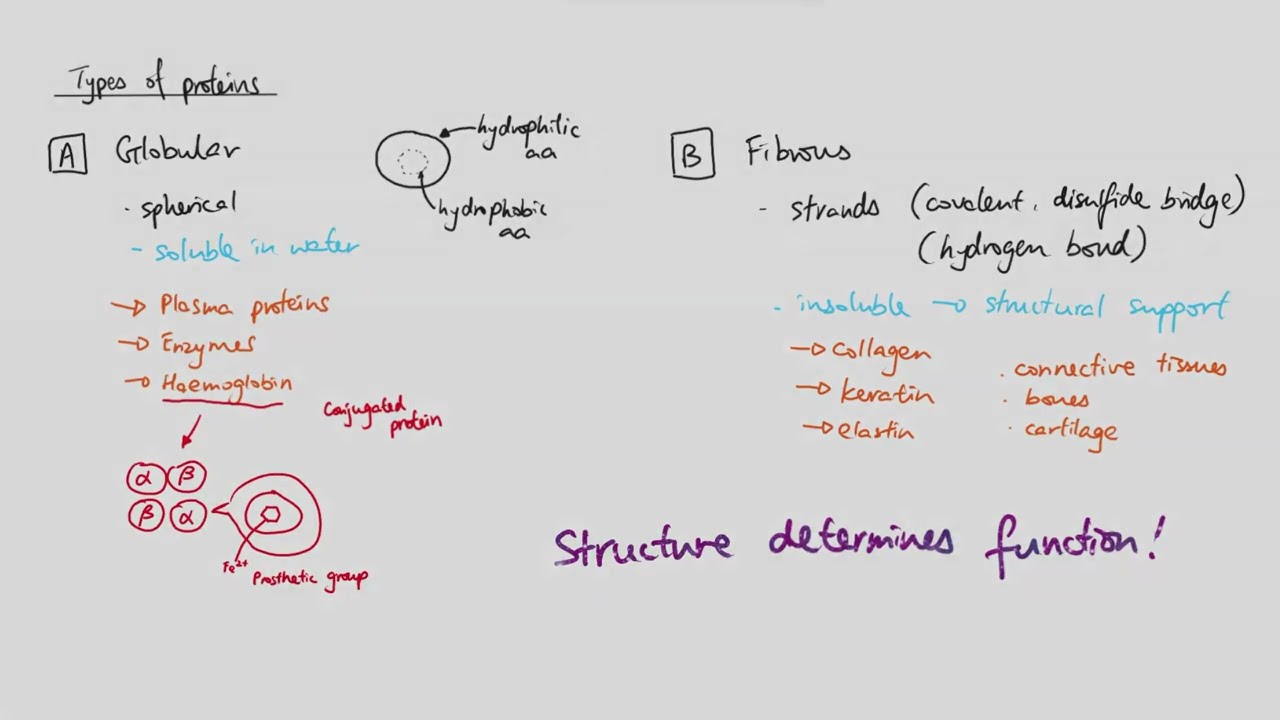 Types of proteins
A Globular
hydrophilic
aa
hydrophobic
aa
· spherical
- soluble in water
→ Plasma proteins
→ Enzymes
→ Haemoglobin
Conjugated
protein
α β
β α
Fe2+
Prosthetic group
B Fibrous
- strands (covalent, disulfide bridge)
(hydrogen bond)
- insoluble → structural support
→ collagen
→ keratin
→ elastin
· connective tissues
· bones
· cartilage
Structure determines function!